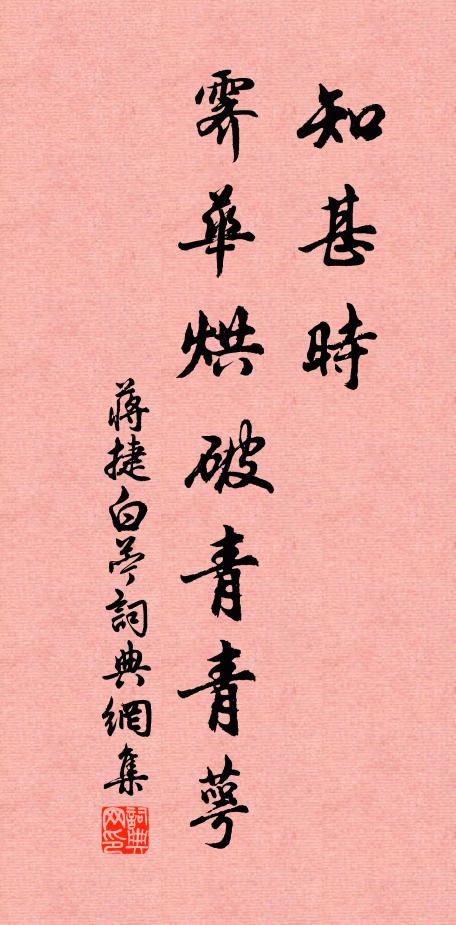 知甚時
霽華烘破青青萼
蔣捷句夢詞典網集
詞典网印